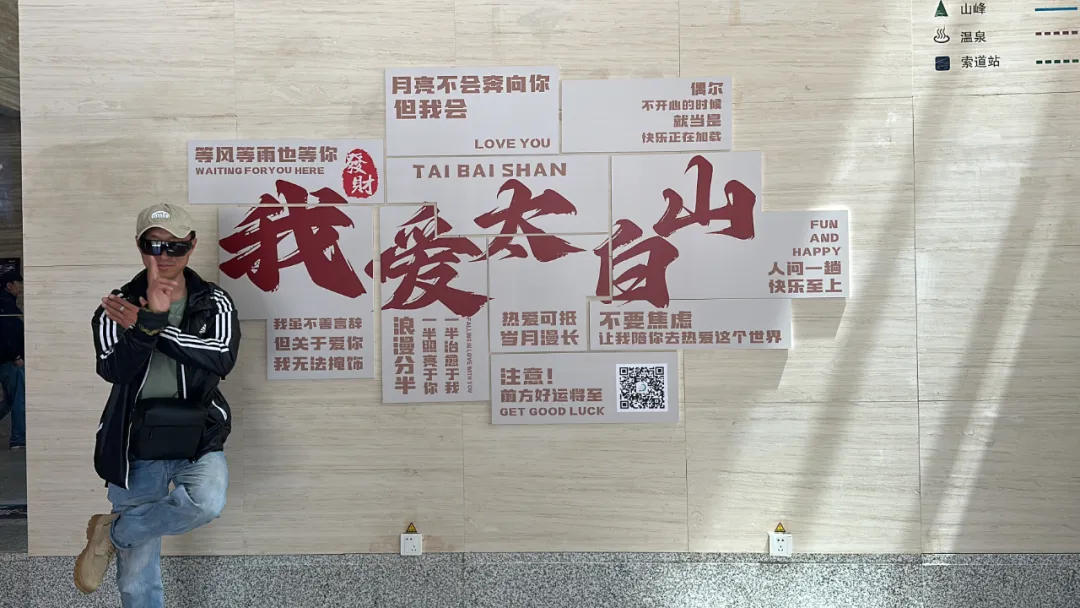 山峰
温泉
索道站
月亮不会奔向你
但我会
LOVE YOU
偶尔
不开心的时候
就当是
快乐正在加载
等风等雨也等你
WAITING FORYOU HERE
發財
TAI BAI SHAN
我爱太白山
FUN
AND
HAPPY
人间一趟
快乐至上
我虽不善言辞
但关于爱你
我无法掩饰
浪漫分半
一半明亮于你
一半治愈于我
FALLING IN LOVE WITH YOU
热爱可抵
岁月漫长
不要焦虑
让我陪你去热爱这个世界
注意！
前方好运将至
GET GOOD LUCK